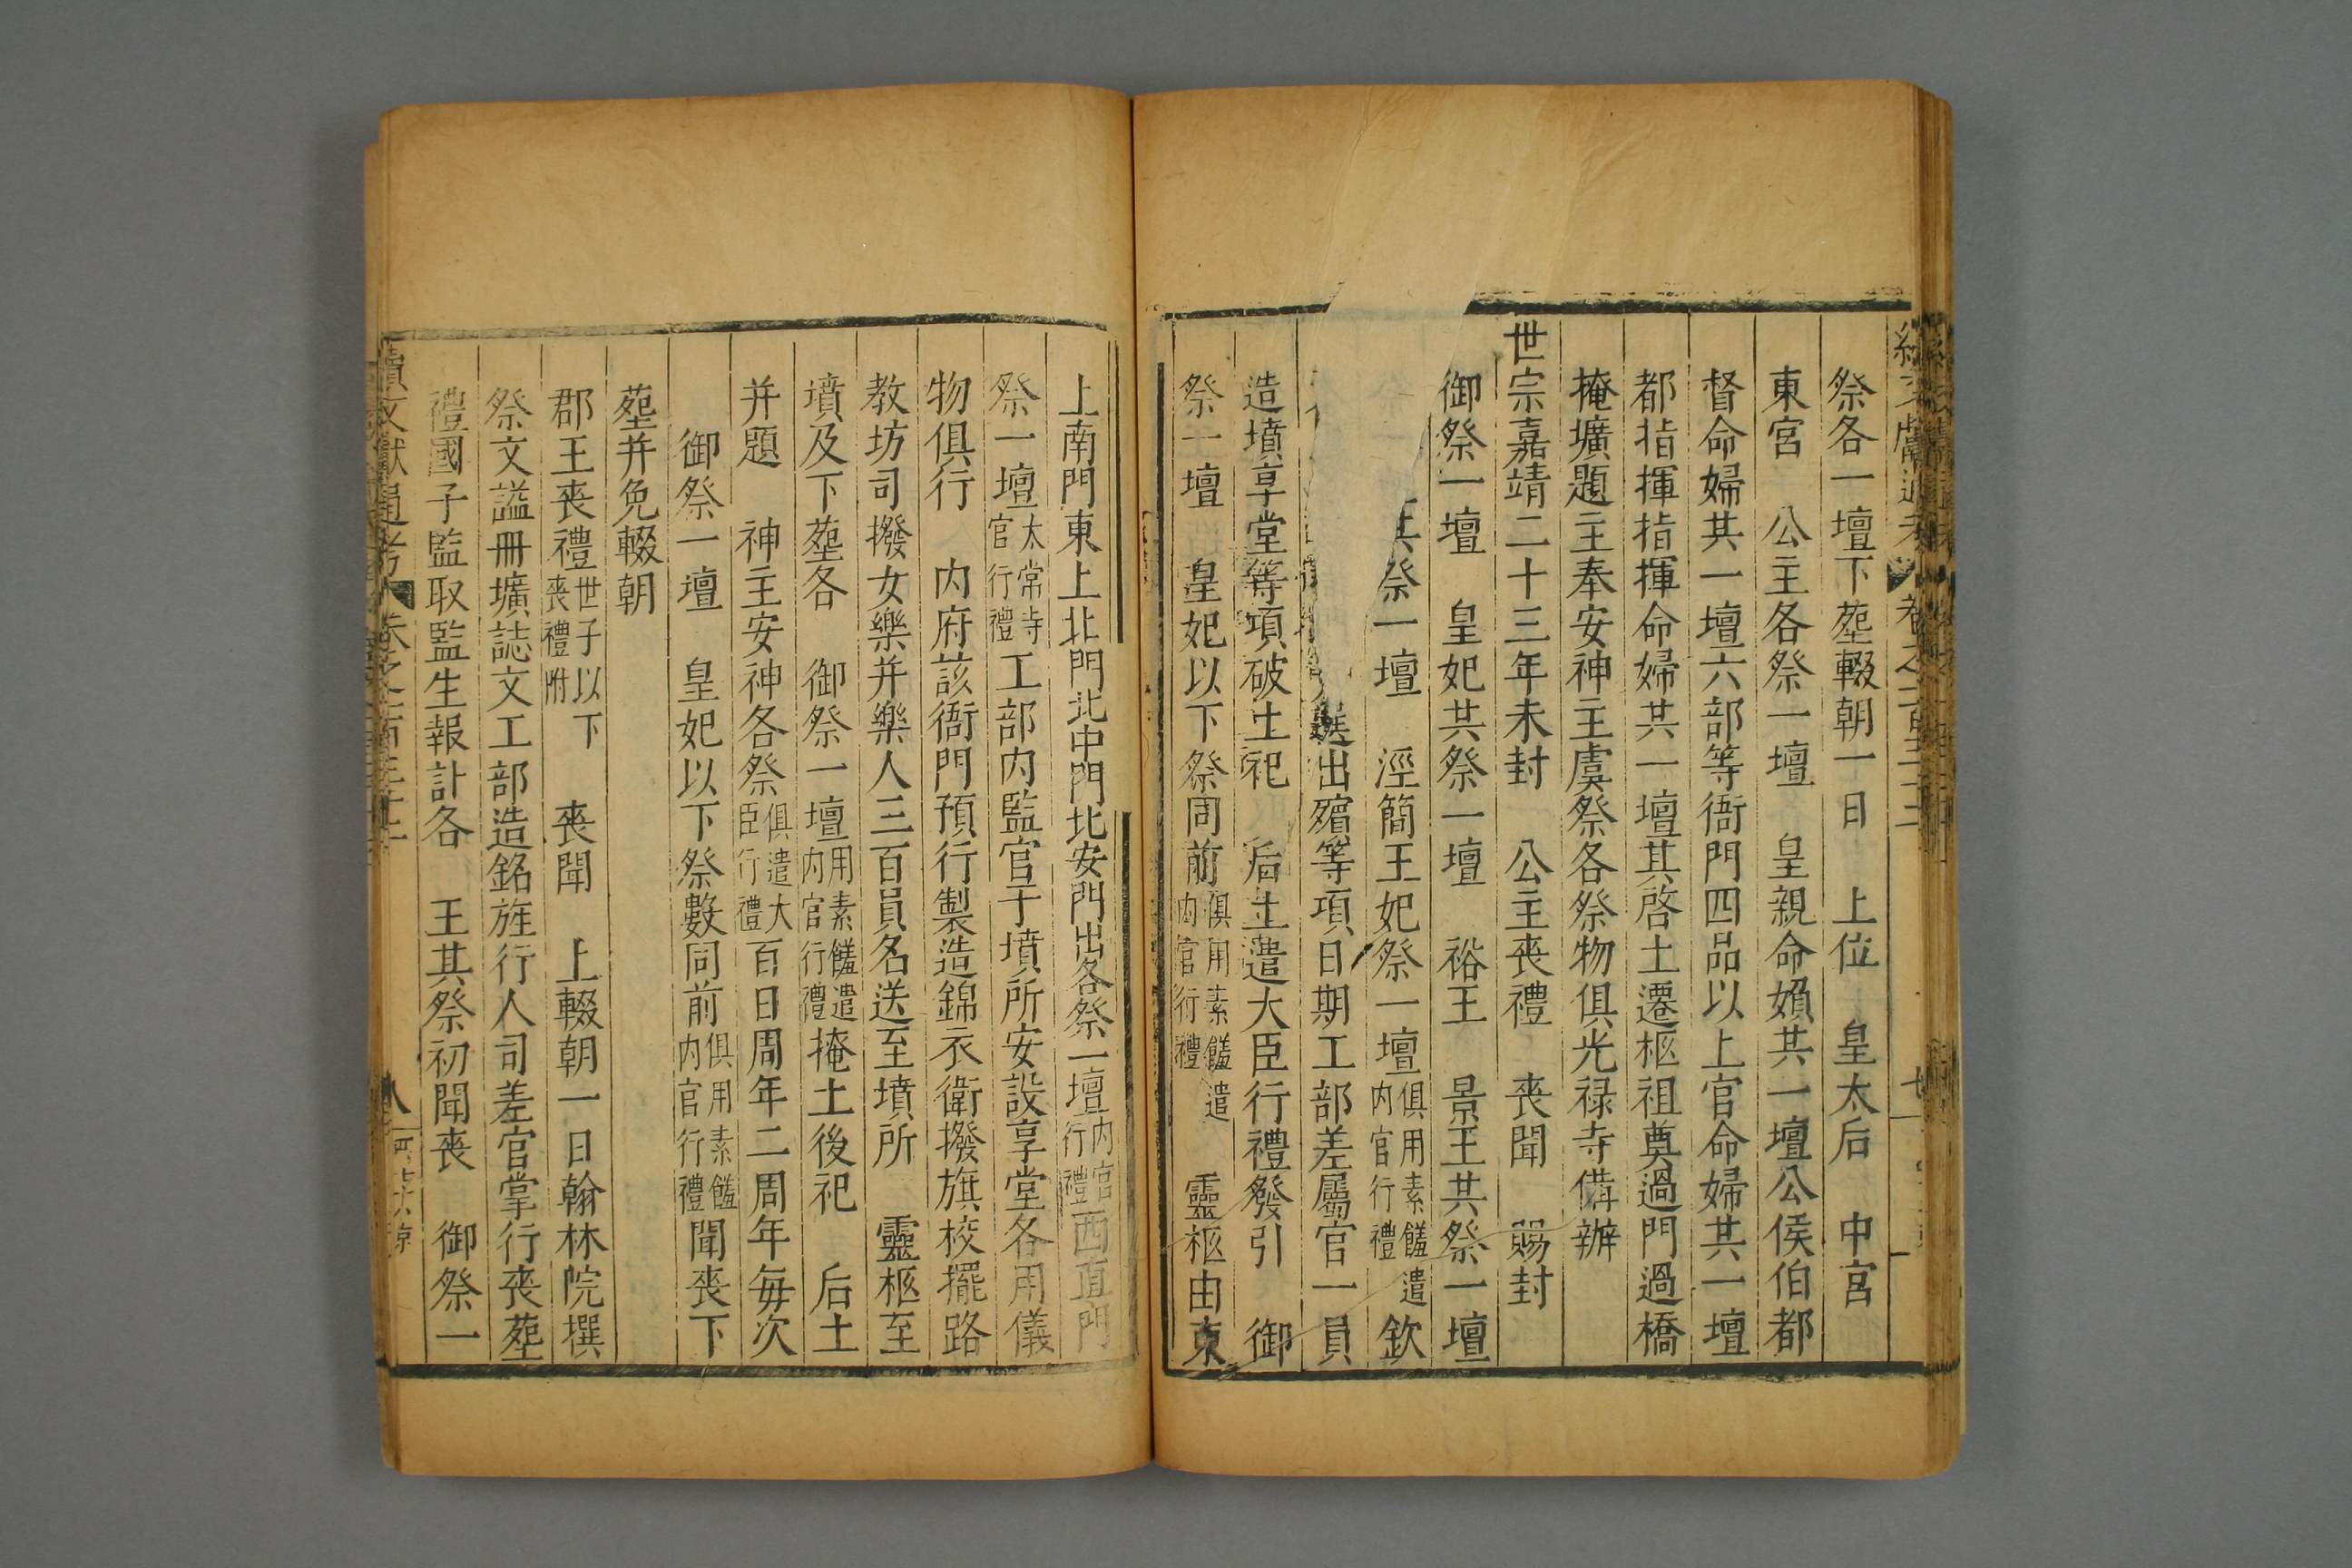 祭各一壇下塟輟朝一日 上位 皇太后 中宮
東宮 公主各祭一壇 皇親命婦共一壇公侯伯都
督命婦共一壇六部等衙門四品以上官命婦共一壇
都指揮指揮命婦共一壇其啓土遷柩祖奠過門過橋
掩壙題主奉安神主虞祭各祭物俱光禄寺俻辦
世宗嘉靖二十三年未封 公主喪禮 喪聞 賜封
御祭一壇 皇妃共祭一壇 裕王 景王共祭一壇
共祭一壇 涇簡王妃祭一壇俱用素饈遣内官行禮 欽
選出殯等項日期工部差屬官一員
造墳享堂等項破土祀 后土遣大臣行禮發引 御
祭一壇 皇妃以下祭同前俱用素饈遣内官行禮 靈柩由東
上南門東上北門北中門北安門出各祭一壇内官行禮西直門
祭一壇太常寺官行禮工部内監官于墳所安設享堂各用儀
物俱行 内府該衙門預行製造錦衣衛撥旗校擺路
教坊司撥女樂并樂人三百員名送至墳所 靈柩至
墳及下塟各 御祭一壇用素饈遣内官行禮掩土後祀 后土
并題 神主安神各祭俱遣大臣行禮百日周年二周年每次
御祭一壇 皇妃以下祭數同前俱用素饈内官行禮聞喪下
塟并免輟朝
郡王喪禮世子以下喪禮附 喪聞 上輟朝一日翰林院撰
祭文謚冊壙誌文工部造銘旌行人司差官掌行喪塟
禮國子監取監生報計各 王其祭初聞喪 御祭一
續文獻通考
八